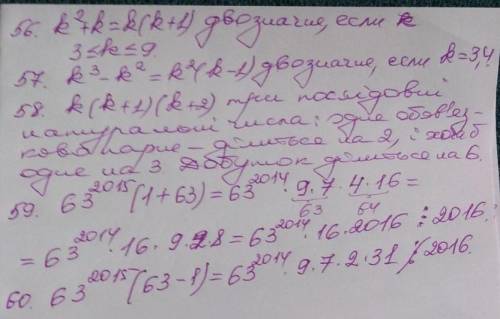 56. k²+k = k(k+1) двозначне, если k
3≤k≤9.
57. k³-k² = k²(k-1) двозначне, если k=3,4
58. k(k+1)(k+2) три послідовні
натуральні числа: одне обов'яз-
ково парне – ділиться на 2, і хоч б
одне на 3. Добуток ділиться на 6.
59. 63²⁰¹⁵(1+63) = 63²⁰¹⁴ · 9·7 · 4·16 =
63 64
= 63²⁰¹⁴ · 16 · 9 · 28 = 63²⁰¹⁴ · 16 · 2016 ⋮ 2016.
60. 63²⁰¹⁵(63-1) = 63²⁰¹⁴ · 9·7·2·31 ⋮̸ 2016.